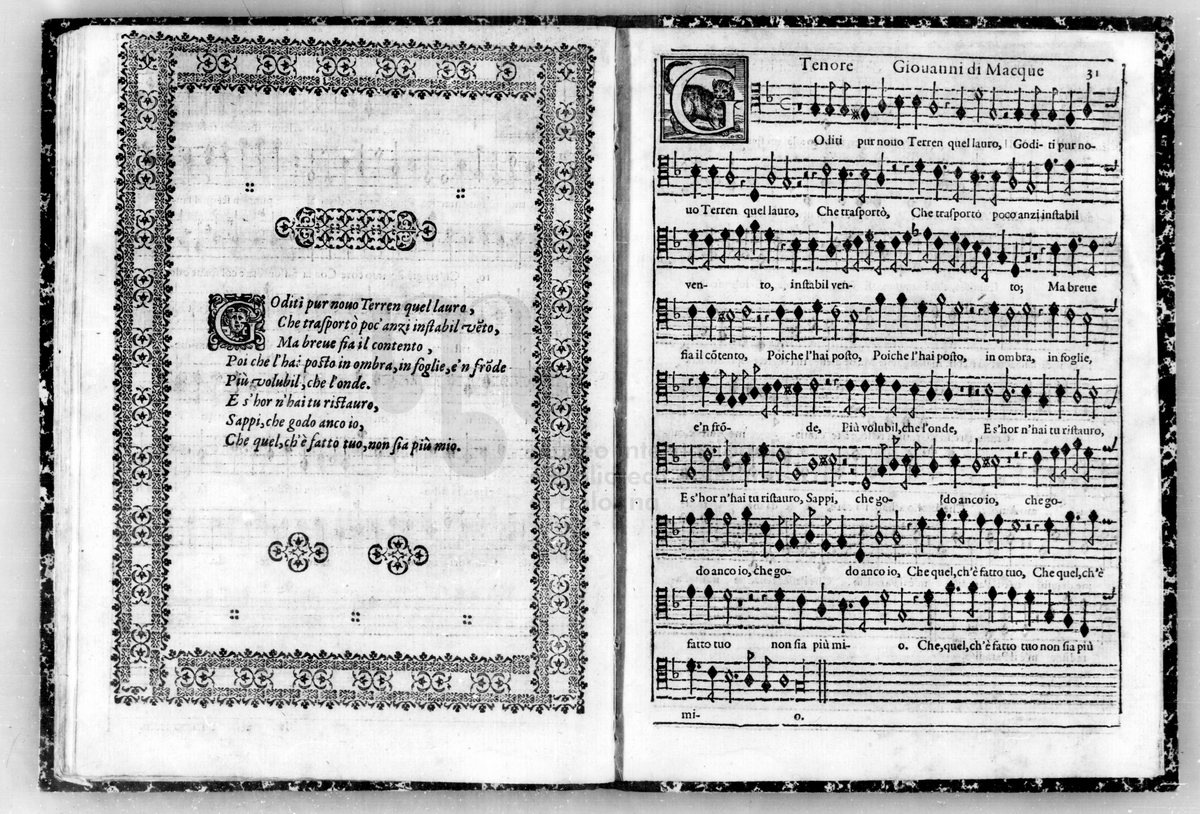 Goditi pur nouo Terren quel lauro,
Che trasportò poc'anzi instabil vẽto,
Ma breue fia il contento,
Poi che l'hai posto in ombra, in foglie, e'n frõde
Più volubil, che l'onde.
E s'hor n'hai tu ristauro,
Sappi, che godo anco io,
Che quel, ch'è fatto tuo, non sia più mio.
Tenore Giouanni di Macque 31
GOditi pur nouo Terren quel lauro, Godi- ti pur no-
uo Terren quel lauro, Che trasportò, Che trasportò poco anzi instabil
ven- to, instabil ven- to; Ma breue
fia il cõtento, Poiche l'hai posto, Poiche l'hai posto, in ombra, in foglie,
e'n frõ- de, Più volubil, che l'onde, E s'hor n'hai tu ristauro,
E s'hor n'hai tu ristauro, Sappi, che go- do anco io, che go-
do anco io, che go- do anco io, Che quel, ch'è fatto tuo, Che quel, ch'è
fatto tuo non sia più mi- o. Che, quel, ch'è fatto tuo non sia più
mi- o.